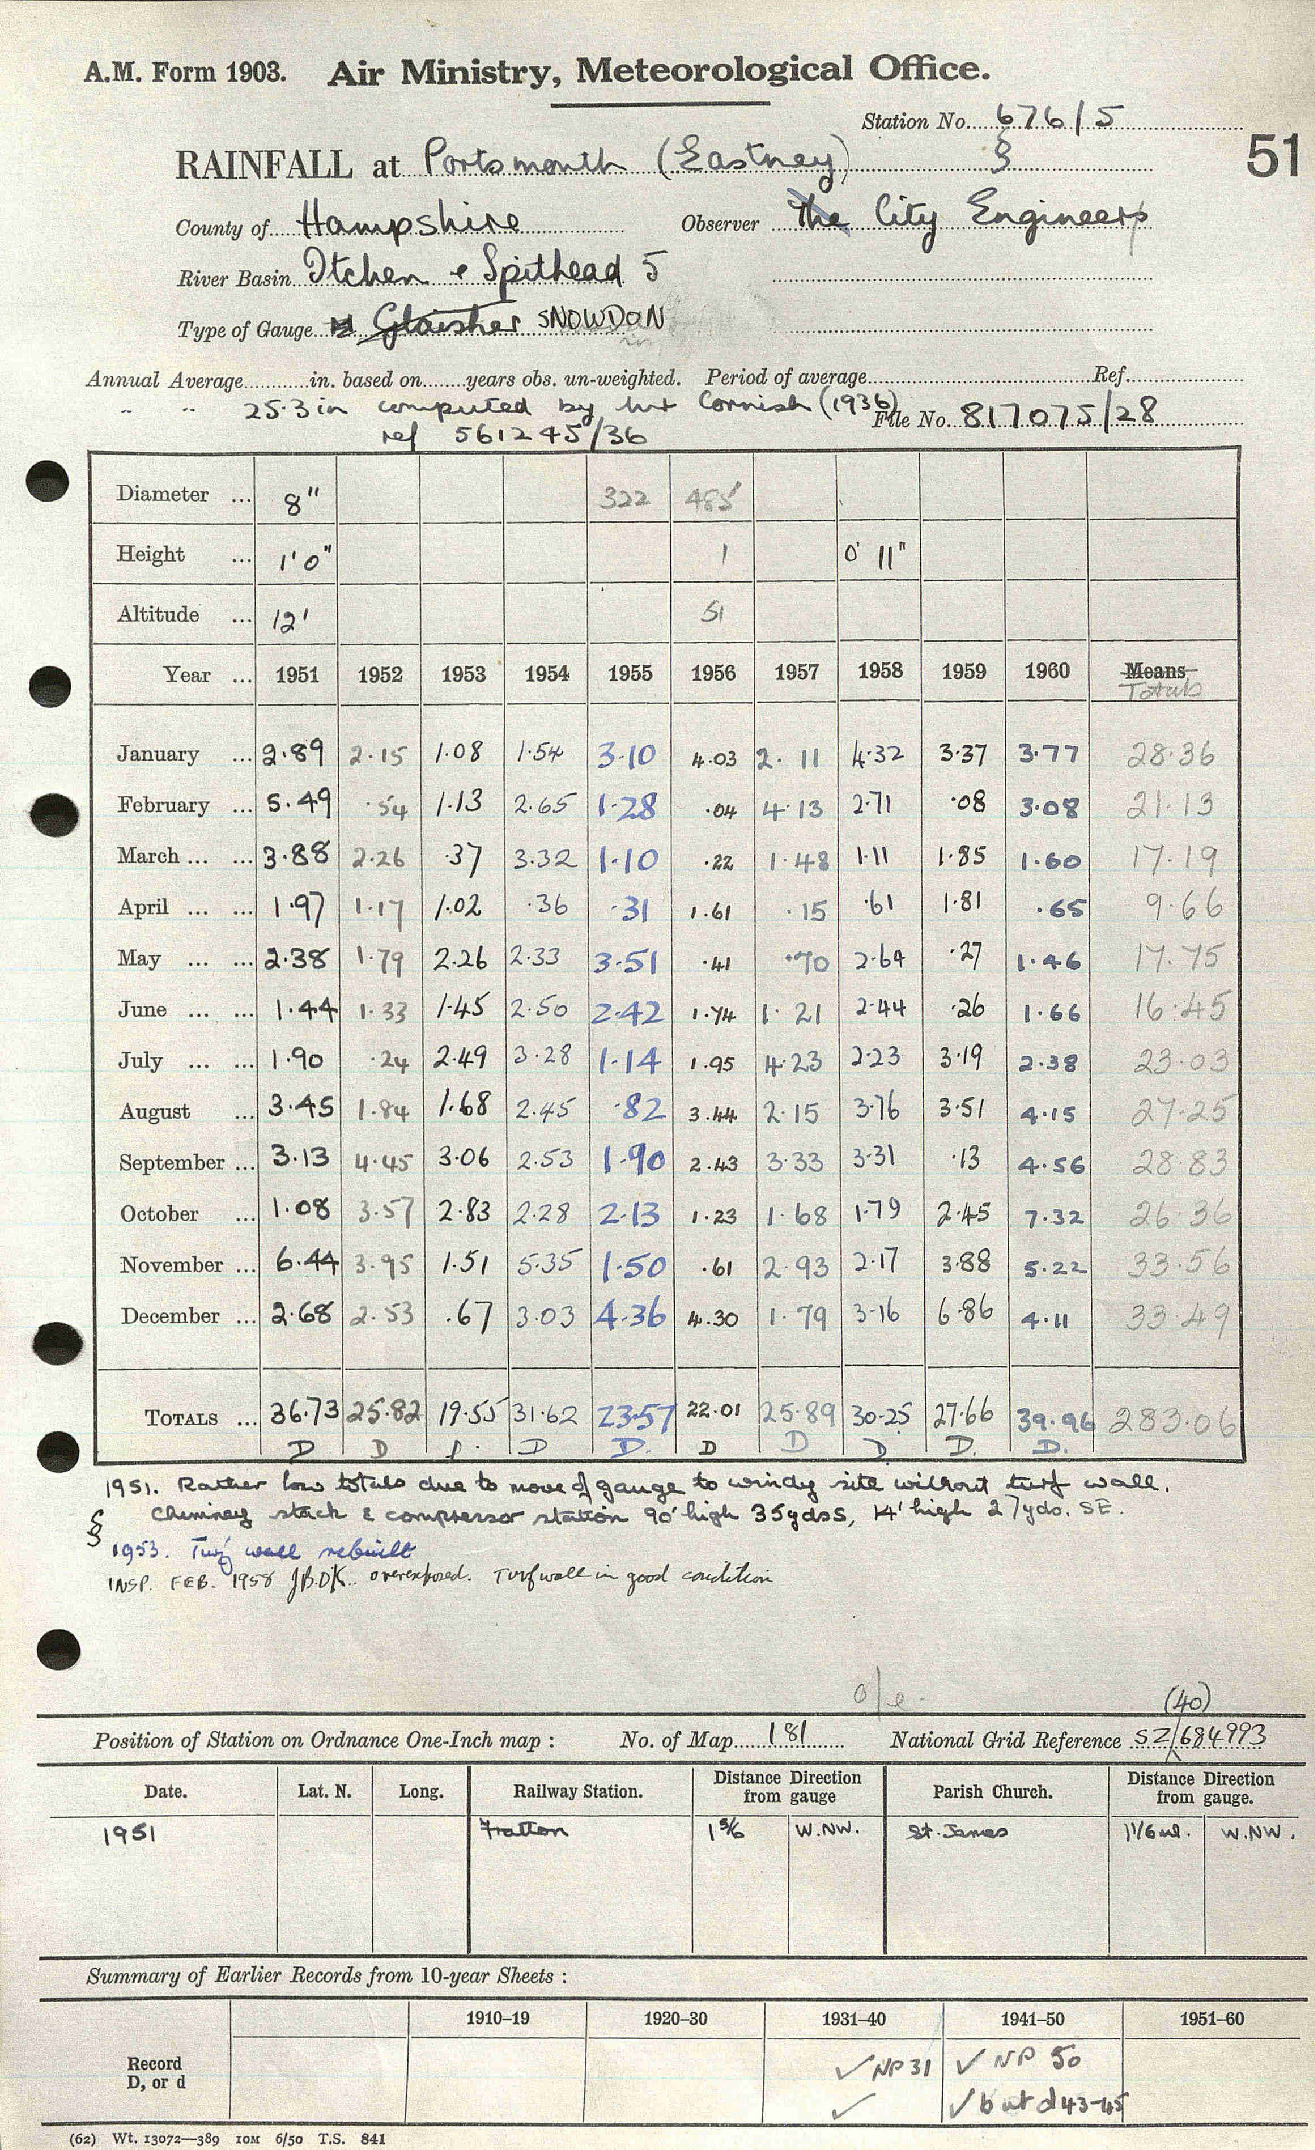 A.M. Form 1903. Air Ministry, Meteorological Office.
Station No. 676/5
51
RAINFALL at Portsmouth (Eastney) §
County of Hampshire Observer The City Engineers
River Basin Itchen & Spithead 5
Type of Gauge Glaisher SNOWDON
Annual Average in. based on years obs. un-weighted. Period of average Ref.
" " 25.3 in computed by Mr Cornish (1936) File No. 817075/28
ref 561245/36
Diameter ... 8" 322 485
Height ... 1' 0" 1 0' 11"
Altitude ... 12' 51
Year ... 1951 1952 1953 1954 1955 1956 1957 1958 1959 1960 Means
Totals
January ... 2.89 2.15 1.08 1.54 3.10 4.03 2.11 4.32 3.37 3.77 28.36
February ... 5.49 .54 1.13 2.65 1.28 .04 4.13 2.71 .08 3.08 21.13
March ... ... 3.88 2.26 .37 3.32 1.10 .22 1.48 1.11 1.85 1.60 17.19
April ... ... 1.97 1.17 1.02 .36 .31 1.61 .15 .61 1.81 .65 9.66
May ... ... 2.38 1.79 2.26 2.33 3.51 .41 .70 2.64 .27 1.46 17.75
June ... ... 1.44 1.33 1.45 2.50 2.42 1.74 1.21 2.44 .26 1.66 16.45
July ... ... 1.90 .24 2.49 3.28 1.14 1.95 4.23 2.23 3.19 2.38 23.03
August ... 3.45 1.84 1.68 2.45 .82 3.44 2.15 3.76 3.51 4.15 27.25
September ... 3.13 4.45 3.06 2.53 1.90 2.43 3.33 3.31 .13 4.56 28.83
October ... 1.08 3.57 2.83 2.28 2.13 1.23 1.68 1.79 2.45 7.32 26.36
November ... 6.44 3.95 1.51 5.35 1.50 .61 2.93 2.17 3.88 5.22 33.56
December ... 2.68 2.53 .67 3.03 4.36 4.30 1.79 3.16 6.86 4.11 33.49
TOTALS ... 36.73 25.82 19.55 31.62 23.57 22.01 25.89 30.25 27.66 39.96 283.06
D D D D. D D D. D. D.
1951. Rather low totals due to move of gauge to windy site without turf wall.
Chimney stack & compressor station 90' high 35yds S, 14' high 27yds. SE.
§
1953. Turf wall rebuilt
INSP. FEB. 1958 J.B.D.K. overexposed. Turf wall in good condition
o/e.
(40)
Position of Station on Ordnance One-Inch map : No. of Map 181 National Grid Reference SZ/684993
Date. Lat. N. Long. Railway Station. Distance from gauge Direction Parish Church. Distance from gauge. Direction
1951 Fratton 1 5/6 W.NW. St. James 1 1/6 ml. W.NW.
Summary of Earlier Records from 10-year Sheets :
1910–19 1920–30 1931–40 1941–50 1951–60
Record D, or d
✓ NP 31 ✓ NP 50
✓ ✓ but d 43-45
(62) Wt. 13072—389 10M 6/50 T.S. 841